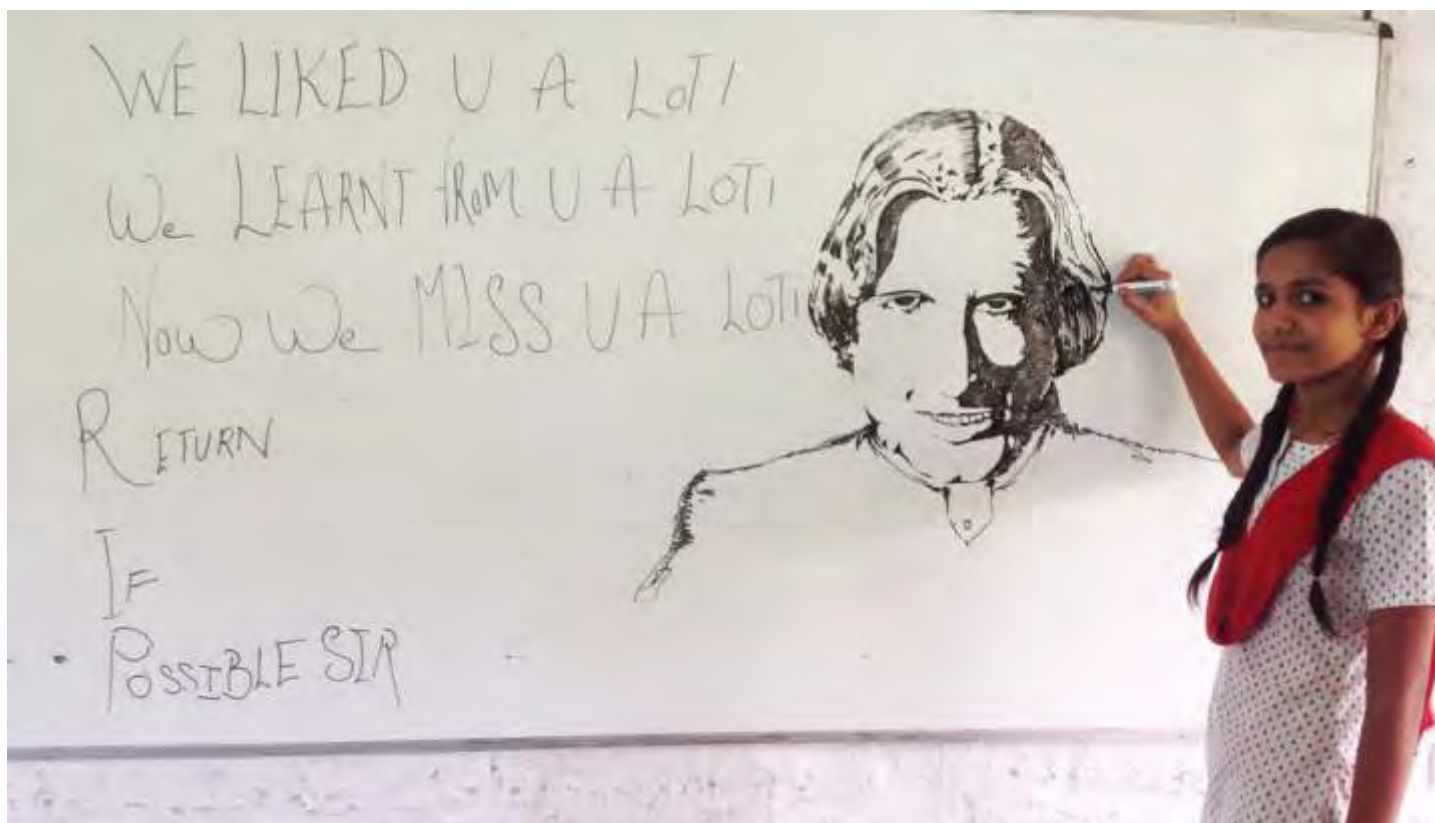 WE LIKED U A LOT!
We LEARNT FROM U A LOT!
Now We MISS U A LOT!
RETURN
IF
POSSIBLE SIR